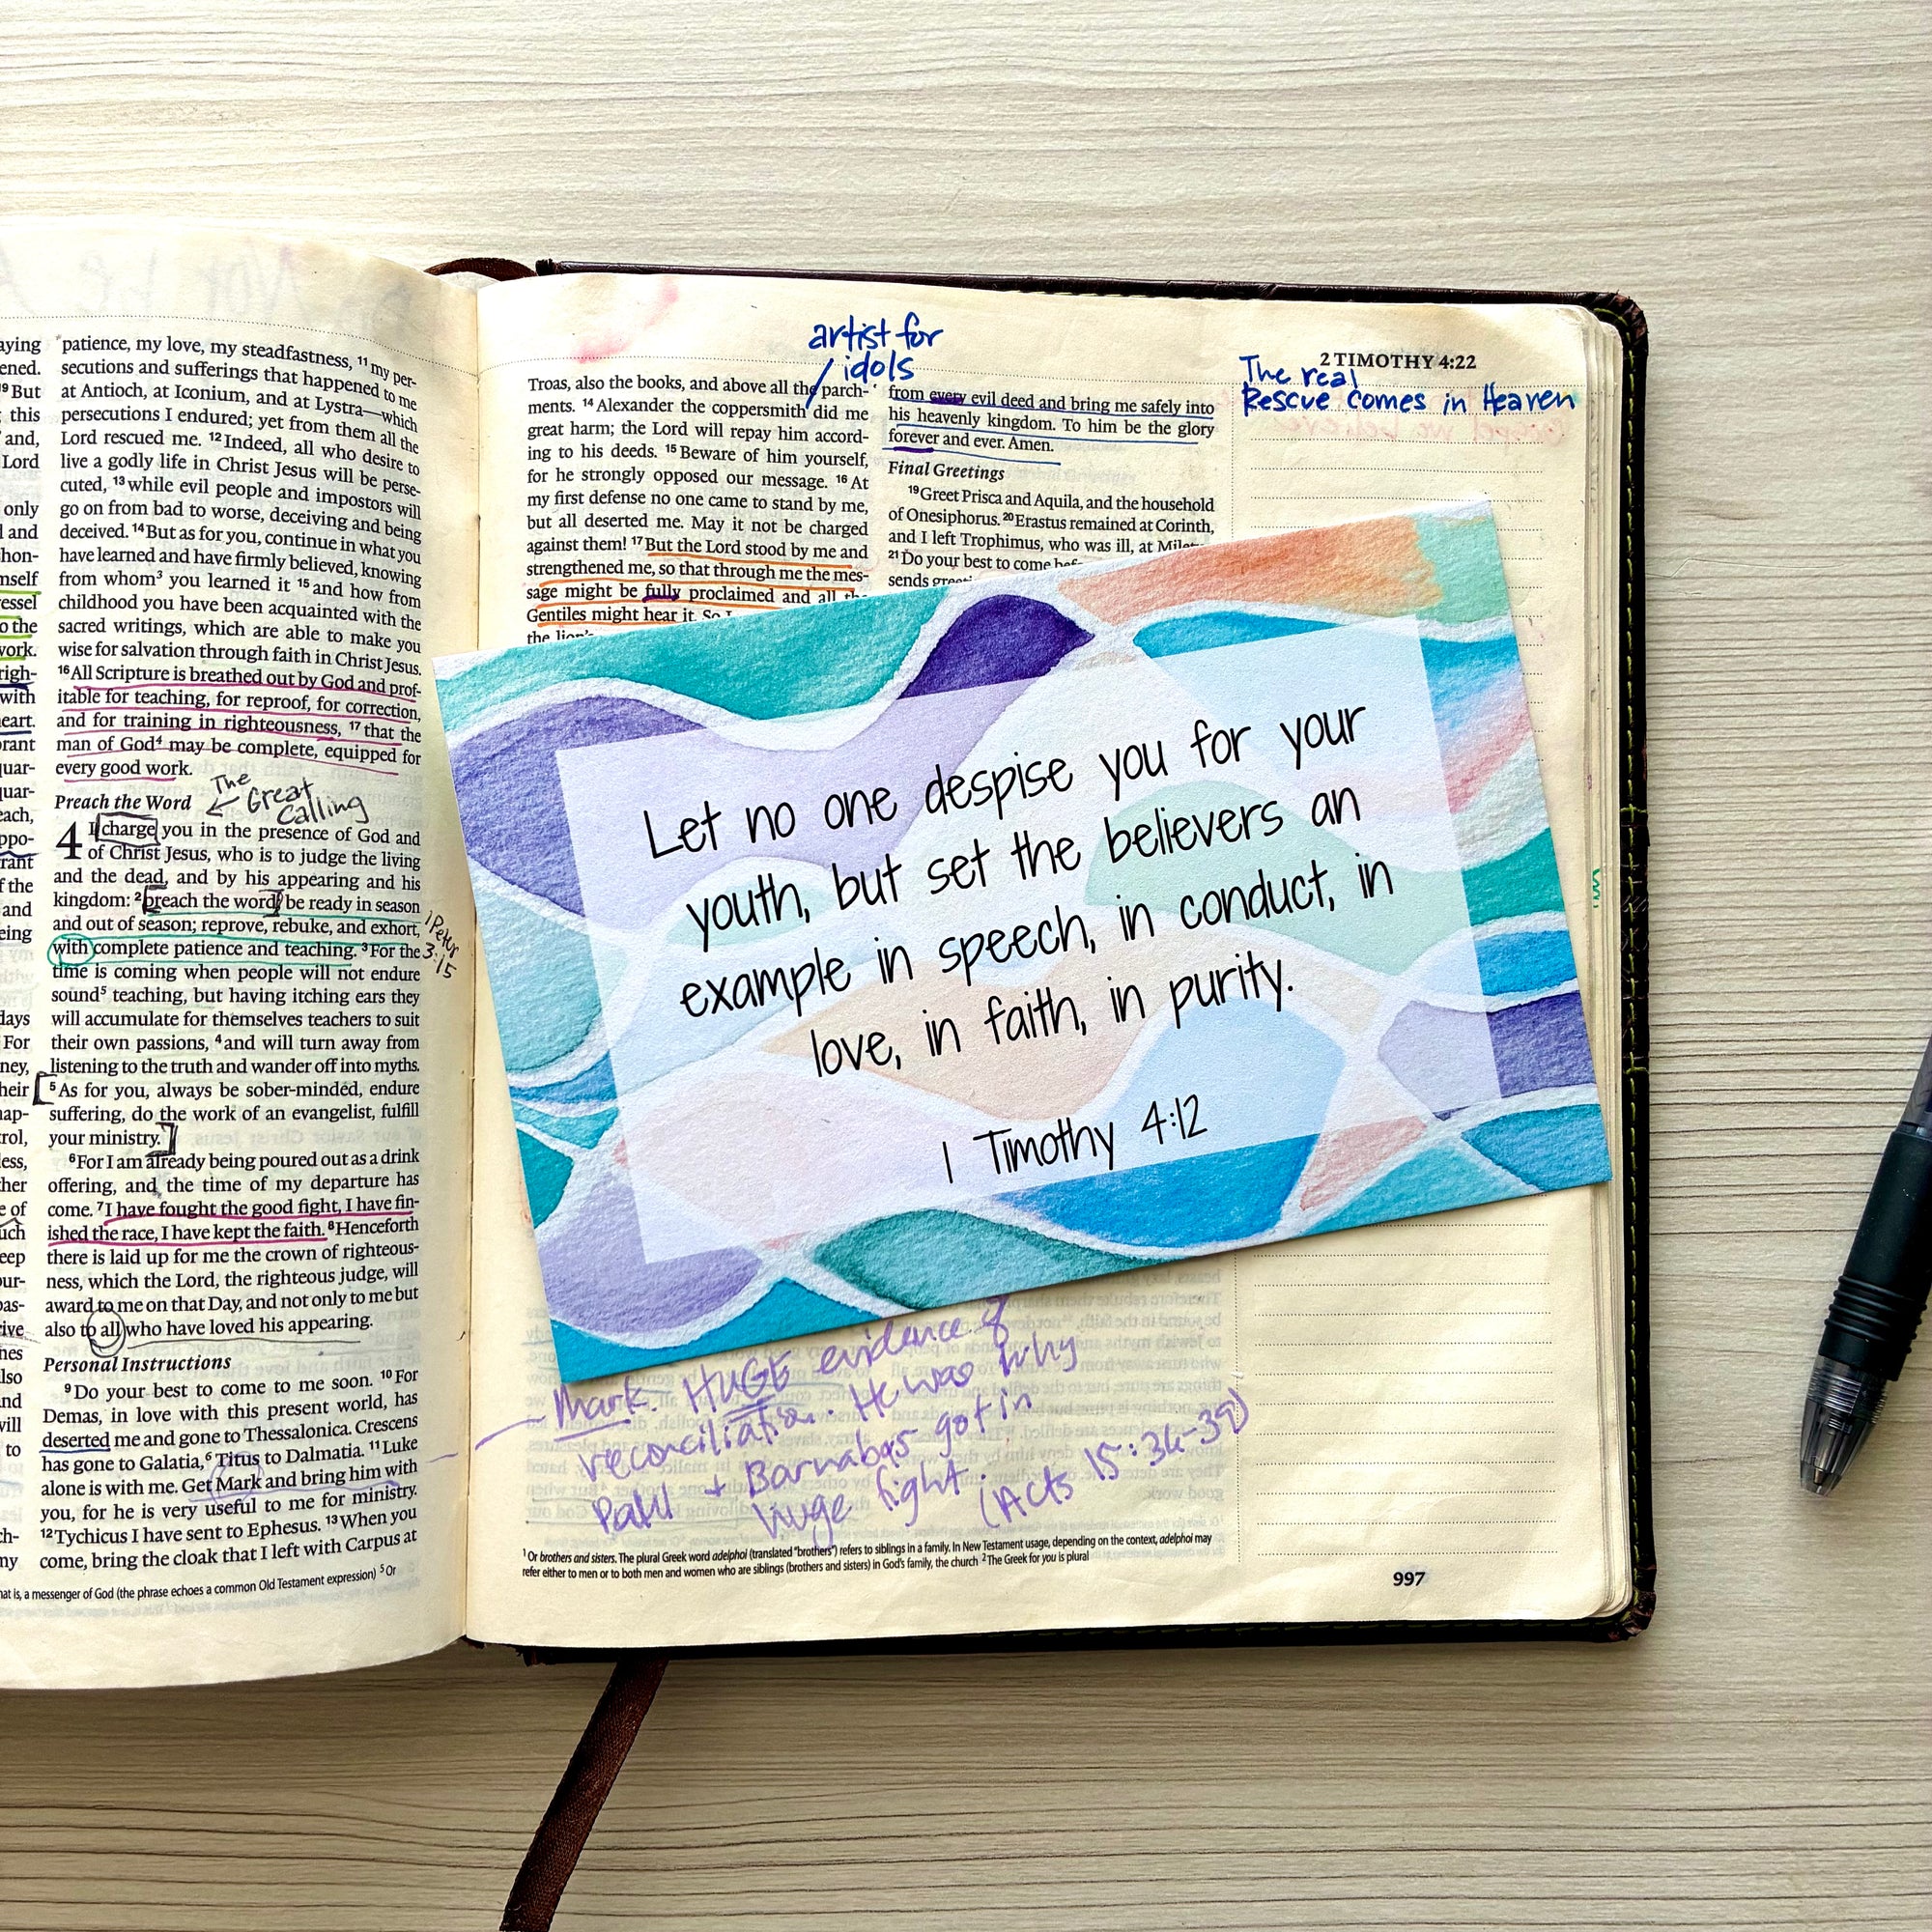 aying
ened.
19 But
this
and,
Lord
only
and
hon-
mself
essel
o the
work.
righ-
with
eart.
orant
quar-
quar-
each,
ppo-
rant
f the
and
eing
days
For
ney,
heir
hap-
trol,
less,
her
e of
uch
eep
our-
pas-
rive
nes
also
nd
will
to
ch-
my
patience, my love, my steadfastness, 11 my per-
secutions and sufferings that happened to me
at Antioch, at Iconium, and at Lystra—which
persecutions I endured; yet from them all the
Lord rescued me. 12 Indeed, all who desire to
live a godly life in Christ Jesus will be perse-
cuted, 13 while evil people and impostors will
go on from bad to worse, deceiving and being
deceived. 14 But as for you, continue in what you
have learned and have firmly believed, knowing
from whom3 you learned it 15 and how from
childhood you have been acquainted with the
sacred writings, which are able to make you
wise for salvation through faith in Christ Jesus.
16 All Scripture is breathed out by God and prof-
itable for teaching, for reproof, for correction,
and for training in righteousness, 17 that the
man of God4 may be complete, equipped for
every good work.
The
Great
Calling
Preach the Word
4 I charge you in the presence of God and
of Christ Jesus, who is to judge the living
and the dead, and by his appearing and his
kingdom: 2 preach the word; be ready in season
and out of season; reprove, rebuke, and exhort,
with complete patience and teaching. 3 For the
1 Peter
3:15
time is coming when people will not endure
sound5 teaching, but having itching ears they
will accumulate for themselves teachers to suit
their own passions, 4 and will turn away from
listening to the truth and wander off into myths.
5 As for you, always be sober-minded, endure
suffering, do the work of an evangelist, fulfill
your ministry.
6 For I am already being poured out as a drink
offering, and the time of my departure has
come. 7 I have fought the good fight, I have fin-
ished the race, I have kept the faith. 8 Henceforth
there is laid up for me the crown of righteous-
ness, which the Lord, the righteous judge, will
award to me on that Day, and not only to me but
also to all who have loved his appearing.
Personal Instructions
9 Do your best to come to me soon. 10 For
Demas, in love with this present world, has
deserted me and gone to Thessalonica. Crescens
has gone to Galatia,6 Titus to Dalmatia. 11 Luke
alone is with me. Get Mark and bring him with
you, for he is very useful to me for ministry.
12 Tychicus I have sent to Ephesus. 13 When you
come, bring the cloak that I left with Carpus at
hat is, a messenger of God (the phrase echoes a common Old Testament expression) 5 Or
artist for
idols
2 TIMOTHY 4:22
The real
Rescue comes in Heaven
Troas, also the books, and above all the parch-
ments. 14 Alexander the coppersmith did me
great harm; the Lord will repay him accord-
ing to his deeds. 15 Beware of him yourself,
for he strongly opposed our message. 16 At
my first defense no one came to stand by me,
but all deserted me. May it not be charged
against them! 17 But the Lord stood by me and
strengthened me, so that through me the mes-
sage might be fully proclaimed and all the
Gentiles might hear it. So I
the lion's
from every evil deed and bring me safely into
his heavenly kingdom. To him be the glory
forever and ever. Amen.
Final Greetings
19 Greet Prisca and Aquila, and the household
of Onesiphorus. 20 Erastus remained at Corinth,
and I left Trophimus, who was ill, at
21 Do your best to come
sends
Let no one despise you for your
youth, but set the believers an
example in speech, in conduct, in
love, in faith, in purity.
1 Timothy 4:12
Mark. HUGE evidence of
reconciliation. He was why
Paul + Barnabas got in
huge fight. (Acts 15:36-39)
1 Or brothers and sisters. The plural Greek word adelphoi (translated "brothers") refers to siblings in a family. In New Testament usage, depending on the context, adelphoi may
refer either to men or to both men and women who are siblings (brothers and sisters) in God's family, the church 2 The Greek for you is plural
997